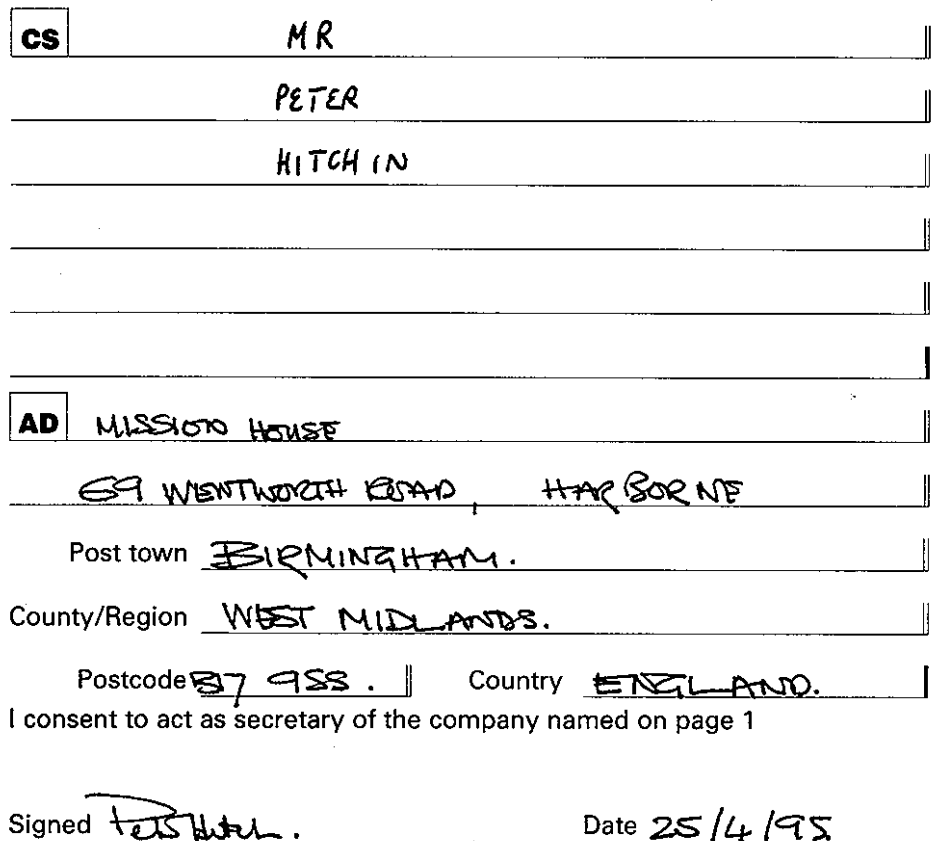 CS MR
PETER
HITCHIN
AD MISSION HOUSE
69 WENTWORTH ROAD, HARBORNE
Post town BIRMINGHAM.
County/Region WEST MIDLANDS.
Postcode B17 9SS. Country ENGLAND.
I consent to act as secretary of the company named on page 1
Signed Date 25/4/95